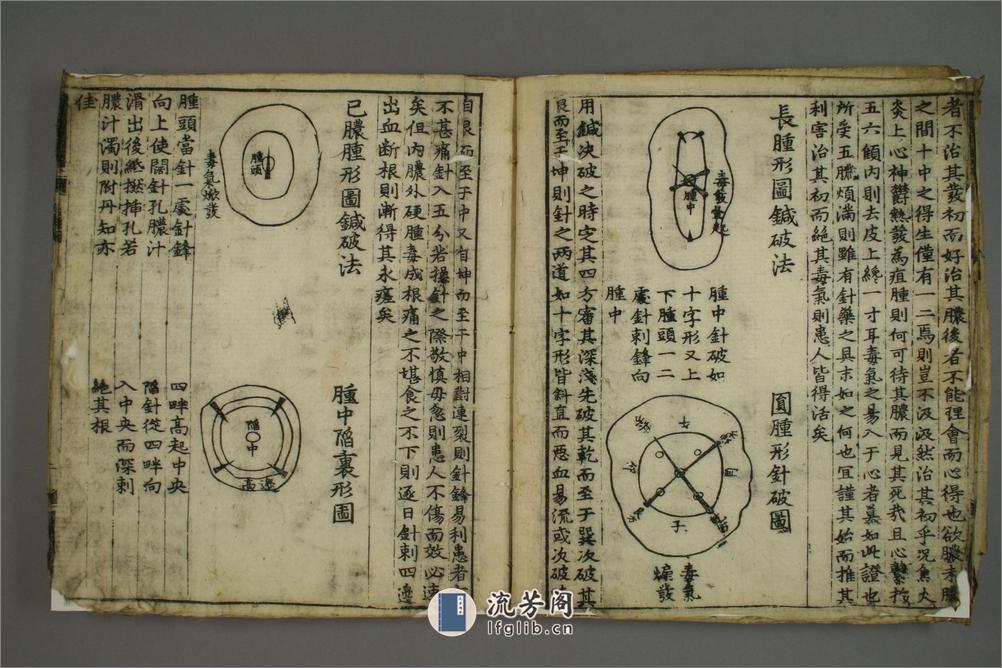 者不治其發初而好治其膿後者不能理會而心得也欲膿未膿
之間十中之得生僅有一二焉則豈不汲汲然治其初乎況焦火
炎上心神鬱熱發為疽腫則何可待其膿而見其死哉且心繫指
五六顀內則去皮上纔一寸耳毒氣之易入于心者慕如此證也
所受五臟煩滿則雖有針藥之具末如之何也宜謹其始而推其
利害治其初而絕其毒氣則患人皆得活矣
長腫形圖鍼破法
腫中
腫中針破如
十字形又上
下腫頭一二
處針刺鋒向
腫中
圓腫形針破圖
子
毒氣
用鍼決破之時定其四方審其深淺先破其乾而至于巽次破其
艮而至于坤則針之两道如十字形皆斜直而悪血易流或次破
自艮而至于中又自坤而至于中相對連裂則針鋒易利患者
不甚痛針入五分若操針之際敬慎毋忽則患人不傷而效必速
矣但內膿外硬腫毒成根痛之不堪食之不下則逐日針刺四邊
出血断根則漸得其永瘥矣
已膿腫形圖鍼破法
腫頭
腫頭當針一處針鋒
向上使闊針孔膿汁
滑出後紙撚揷孔若
膿汁濁則附丹知亦
佳
腫中陷裏形圖
陷中
高邊
四畔高起中央
陷針從四畔向
入中央而深刺
絕其根
流芳阁
lfglib.cn